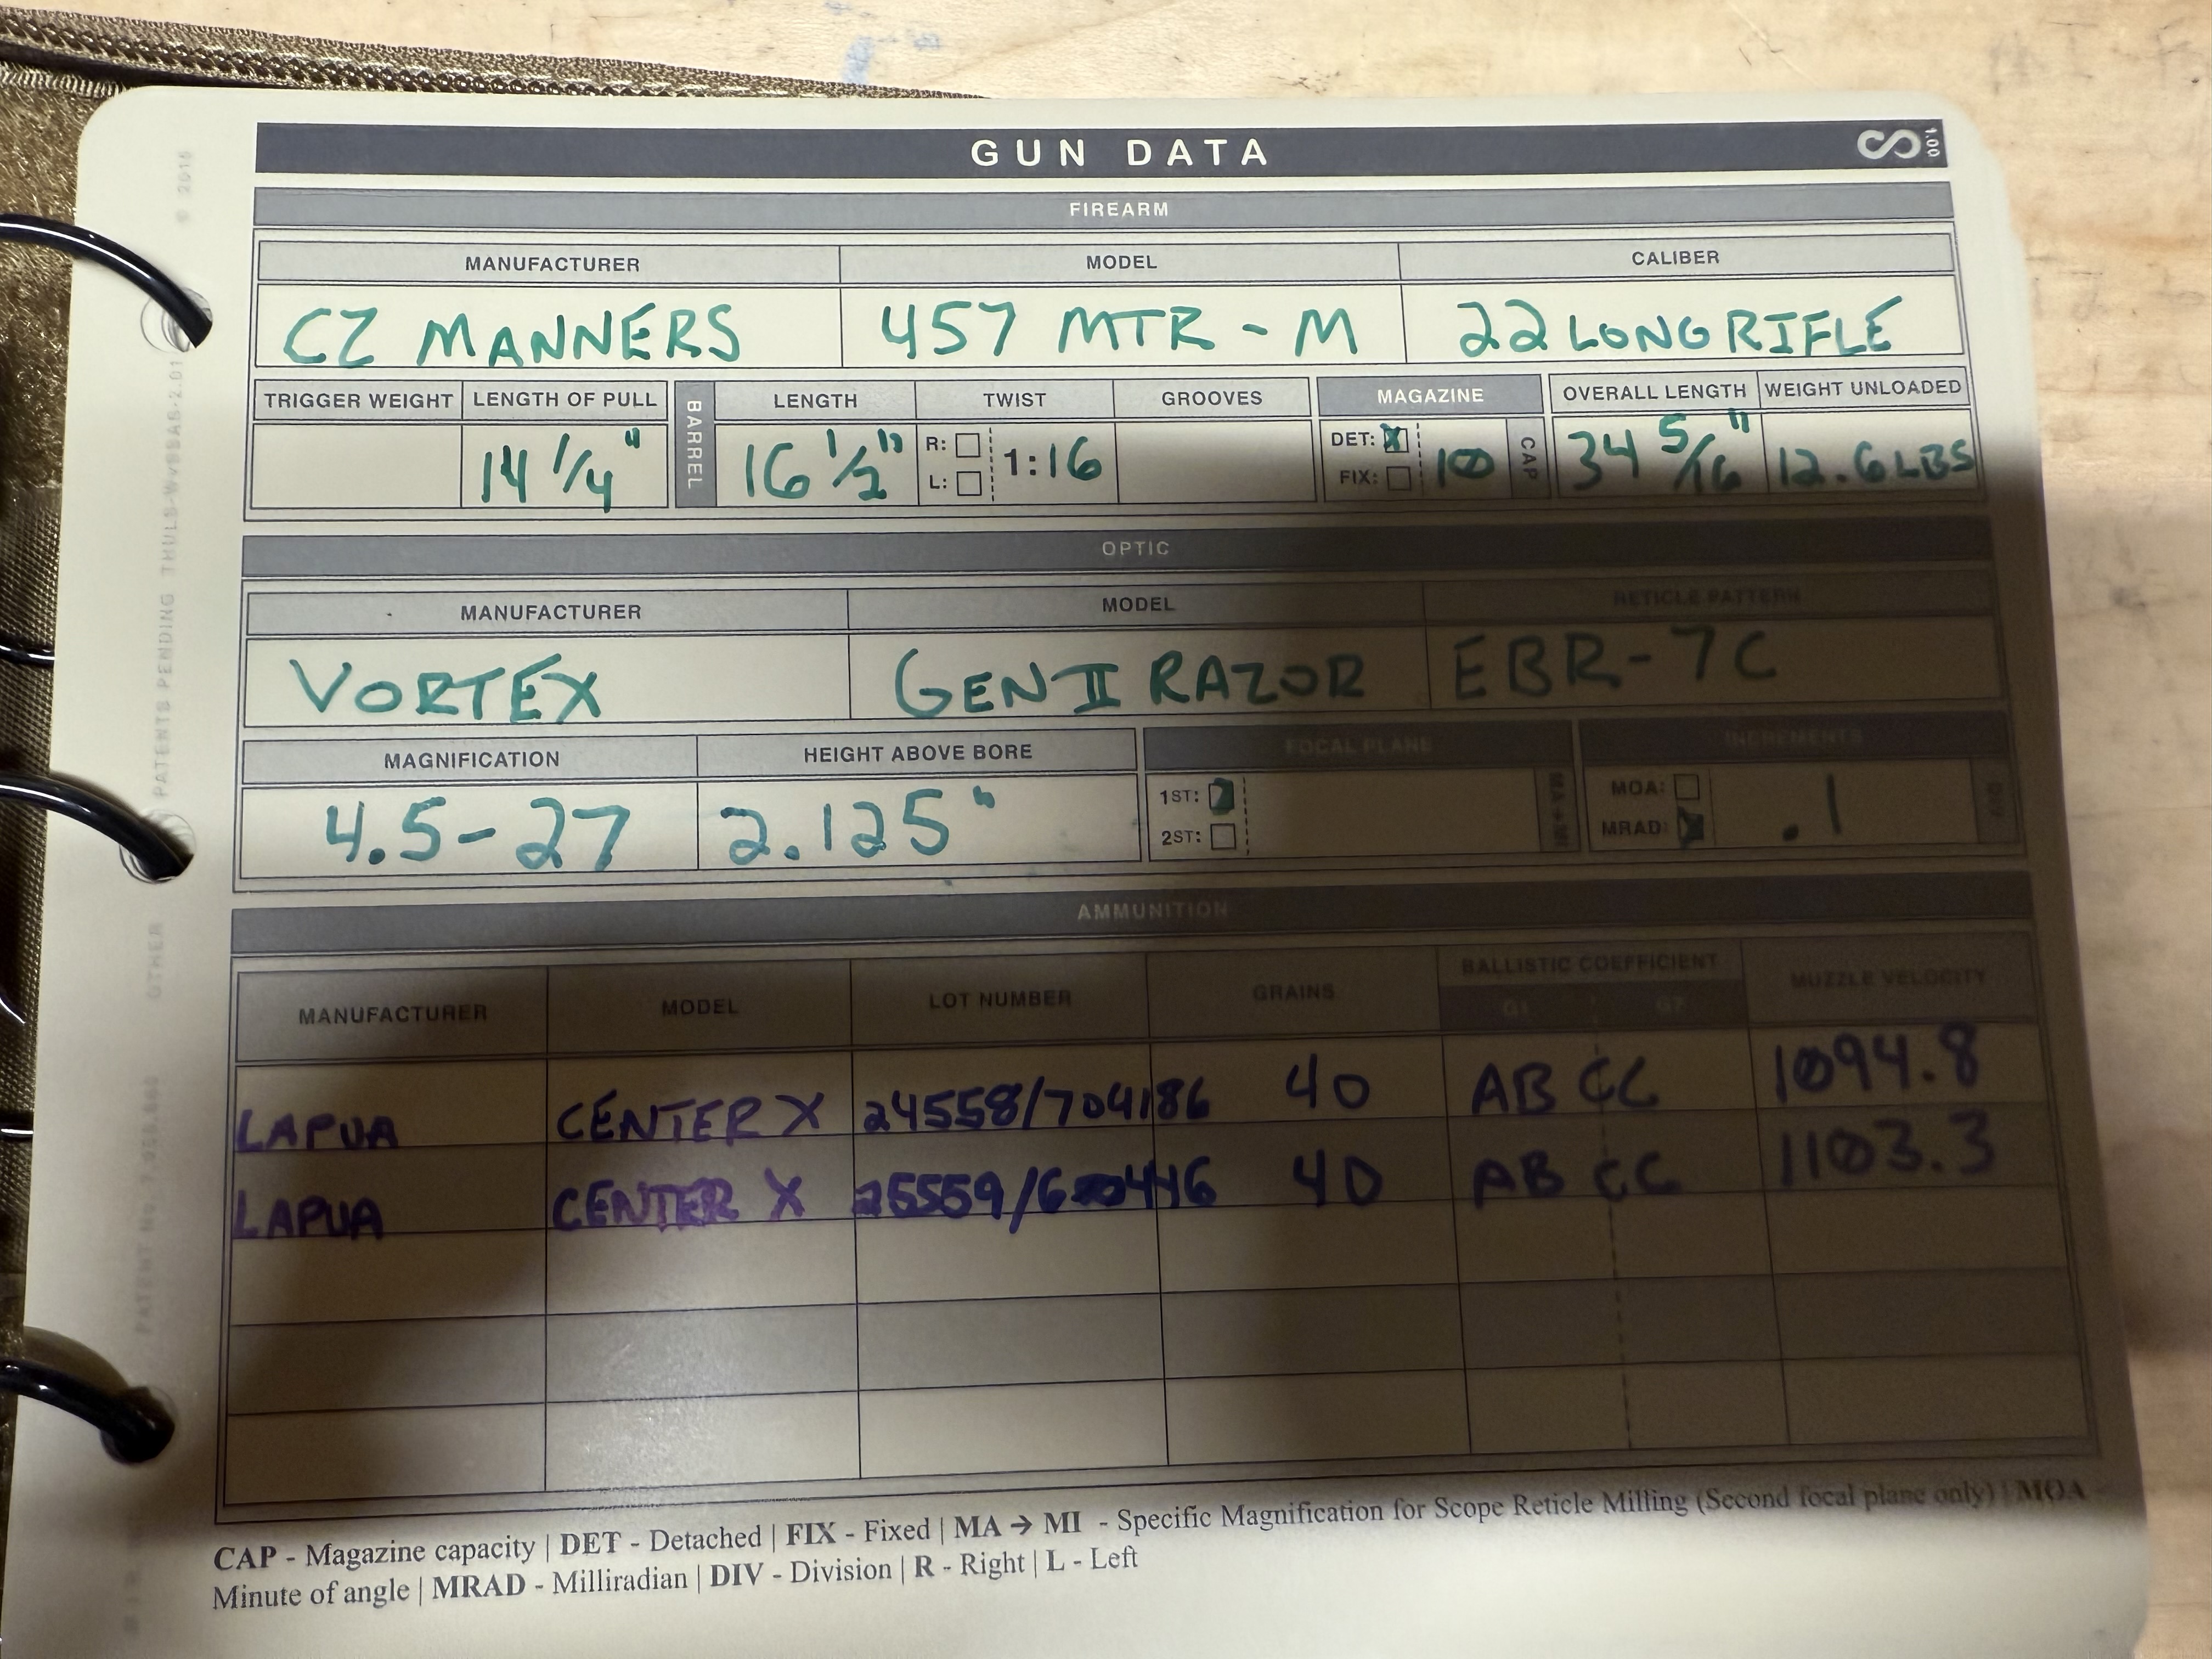 GUN DATA
1.00
FIREARM
MANUFACTURER MODEL CALIBER
CZ MANNERS 457 MTR - M 22 LONG RIFLE
TRIGGER WEIGHT LENGTH OF PULL BARREL LENGTH TWIST GROOVES MAGAZINE OVERALL LENGTH WEIGHT UNLOADED
14 1/4" 16 1/2" R: L: 1:16 DET: X FIX: 10 CAP 34 5/16" 12.6 LBS
OPTIC
MANUFACTURER MODEL RETICLE PATTERN
VORTEX GEN II RAZOR EBR-7C
MAGNIFICATION HEIGHT ABOVE BORE FOCAL PLANE INCREMENTS
4.5-27 2.125" 1ST: 2ST: MA→MI MOA: MRAD: .1 DIV
AMMUNITION
MANUFACTURER MODEL LOT NUMBER GRAINS BALLISTIC COEFFICIENT MUZZLE VELOCITY
G1 G7
LAPUA CENTER X 24558/704186 40 AB CC 1094.8
LAPUA CENTER X 40 AB CC 1103.3
CAP - Magazine capacity | DET - Detached | FIX - Fixed | MA → MI - Specific Magnification for Scope Reticle Milling (Second focal plane only) | MOA -
Minute of angle | MRAD - Milliradian | DIV - Division | R - Right | L - Left
© 2015
PATENTS PENDING
OTHER